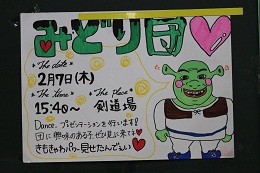 みどり団
*The date*
2月7日(木)
*The time* *The place*
15:40~ 剣道場
Dance、プレゼンテーションを行います!
団に興味のある子、ぜひ見に来てネ
きもちゃわパワー見せたんでぇぃ